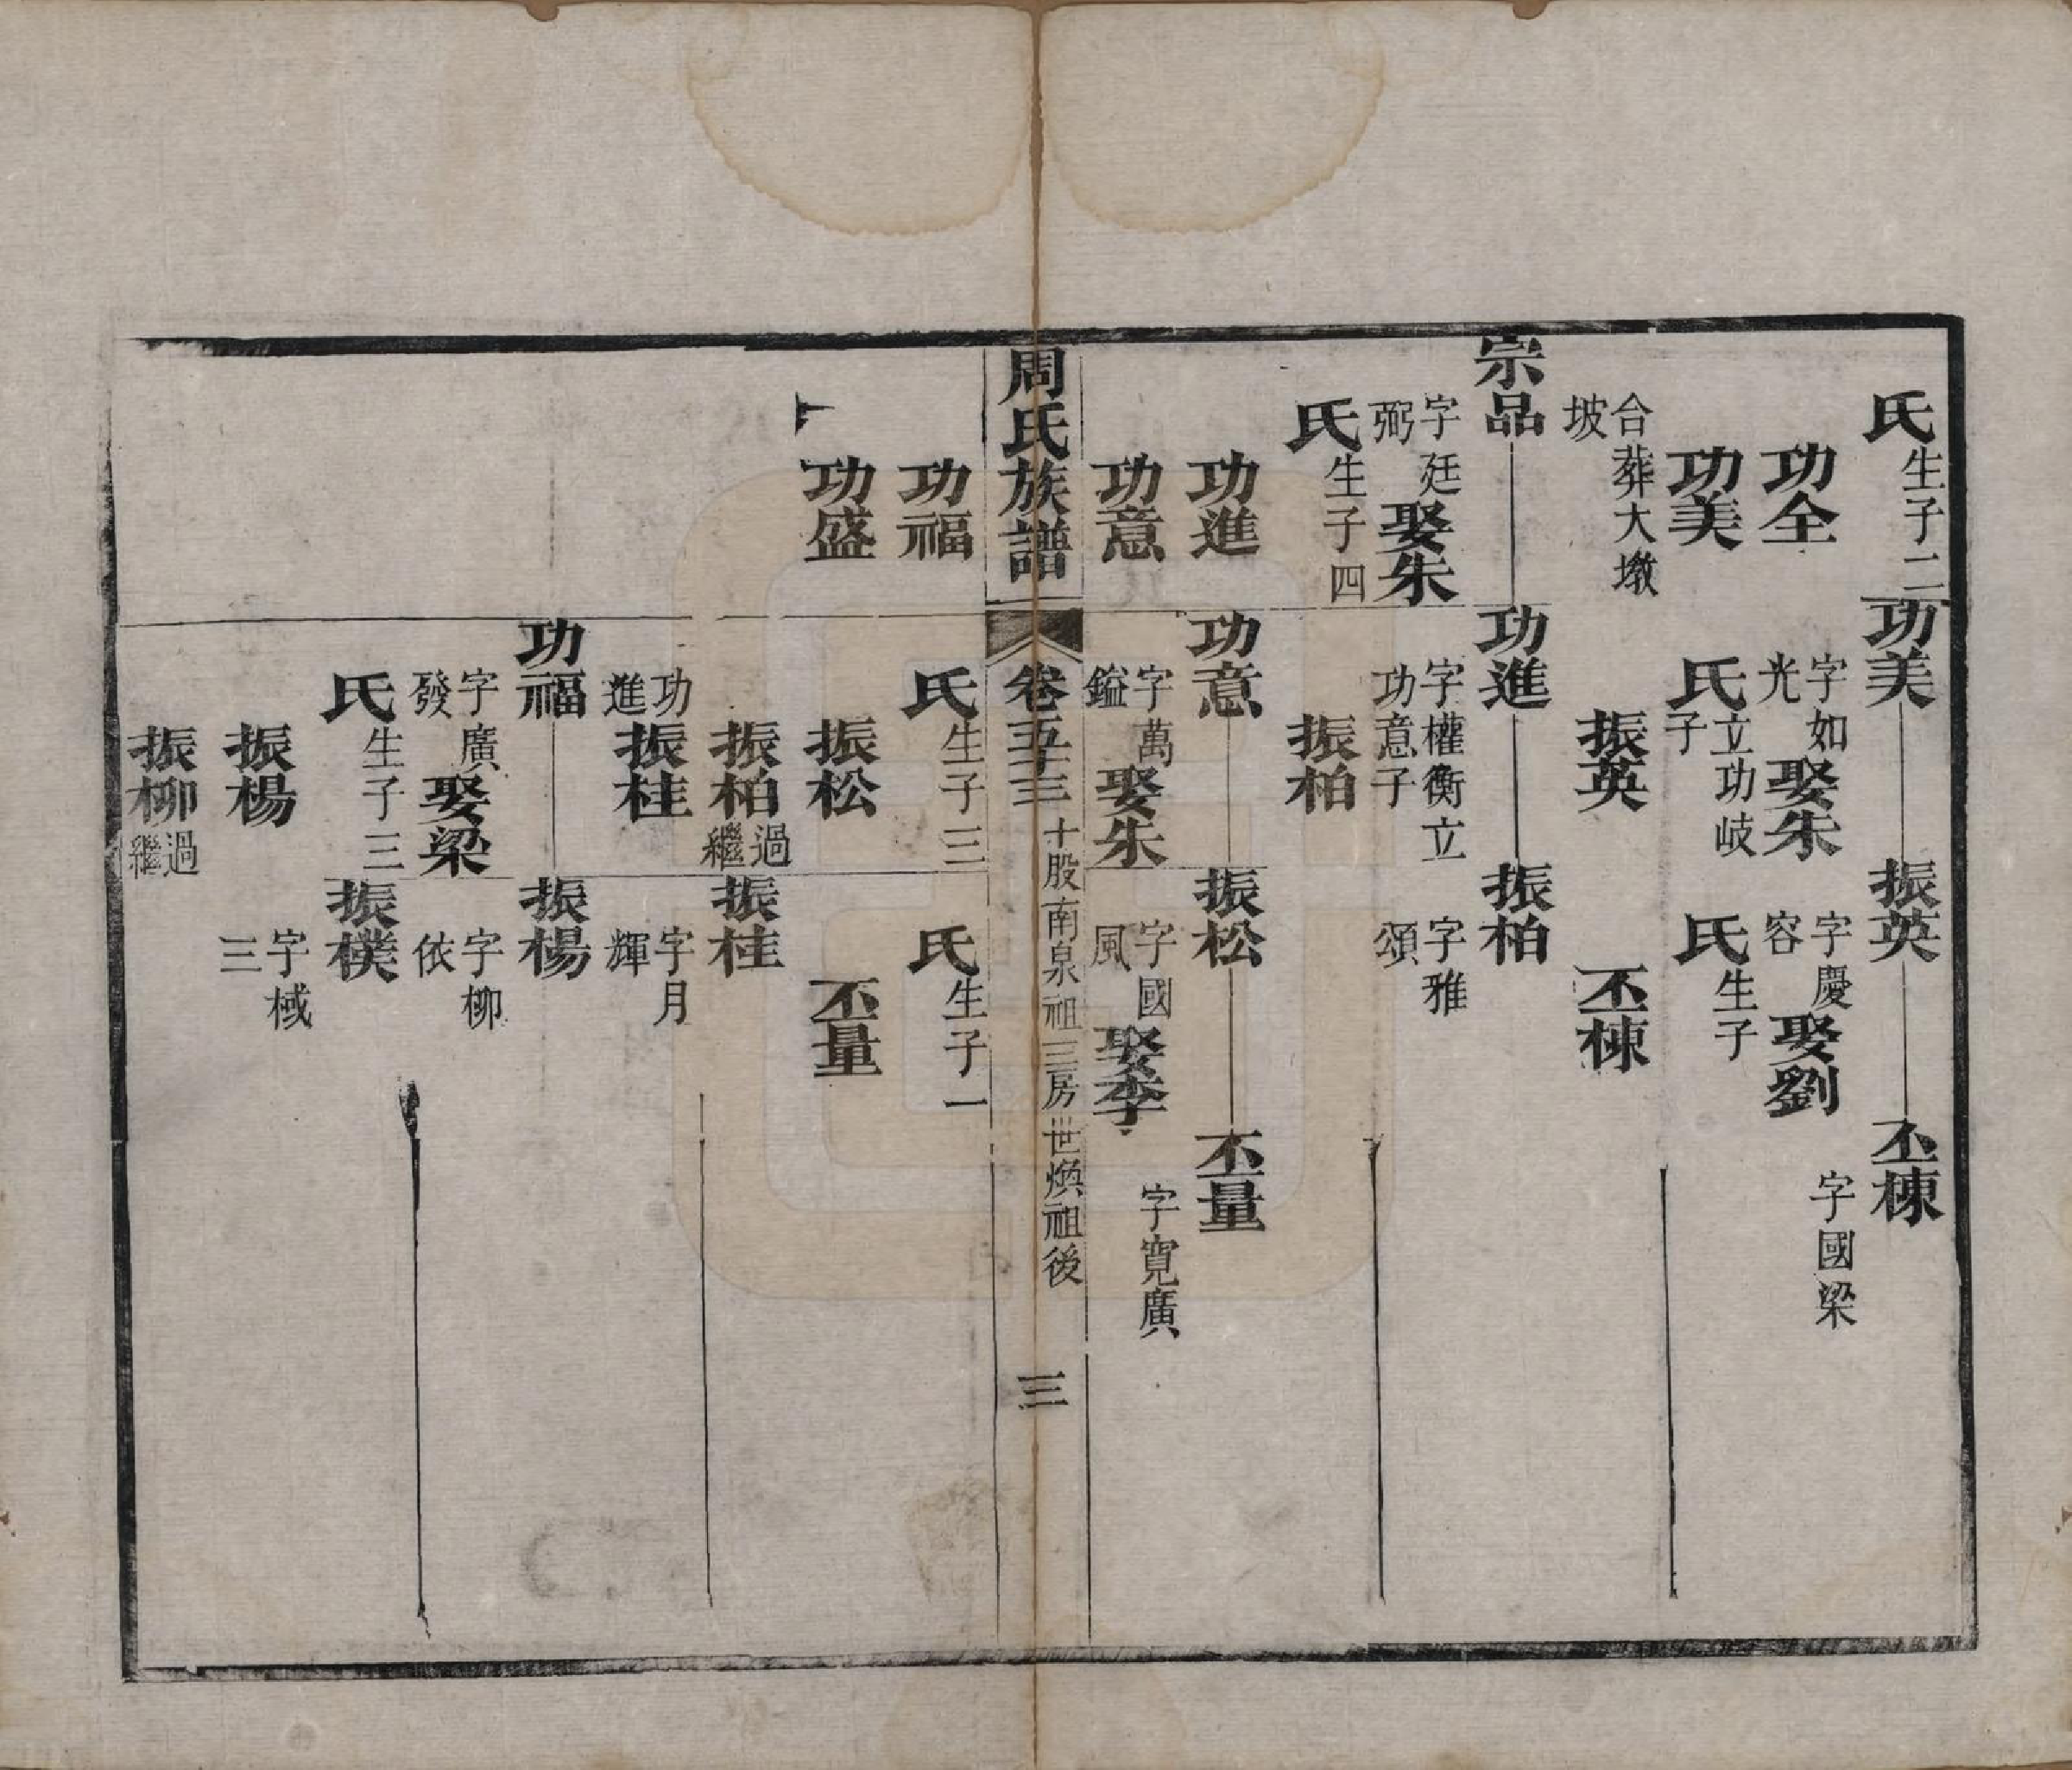 氏生子二
功美
振英
丕棟
功全
字如光娶朱
字慶容娶劉
字國梁
功美
氏立功岐子
氏生子
合葬大墩坡
振英
丕棟
宗品
功進
振柏
字廷弼娶朱
字權衡立功意子
字雅頌
氏生子四
振柏
功進
功意
振松
丕量
功意
字萬鎰娶朱
字國風娶李
字寬廣
周氏族譜
卷五十三
十股南泉祖三房世煥祖後
三
功福
氏生子三
氏生子一
功盛
振松
丕量
振柏過繼
振桂
功進
振桂
字月輝
功福
振楊
字廣發娶梁
字柳依
氏生子三
振樸
振楊
字棫三
振柳過繼